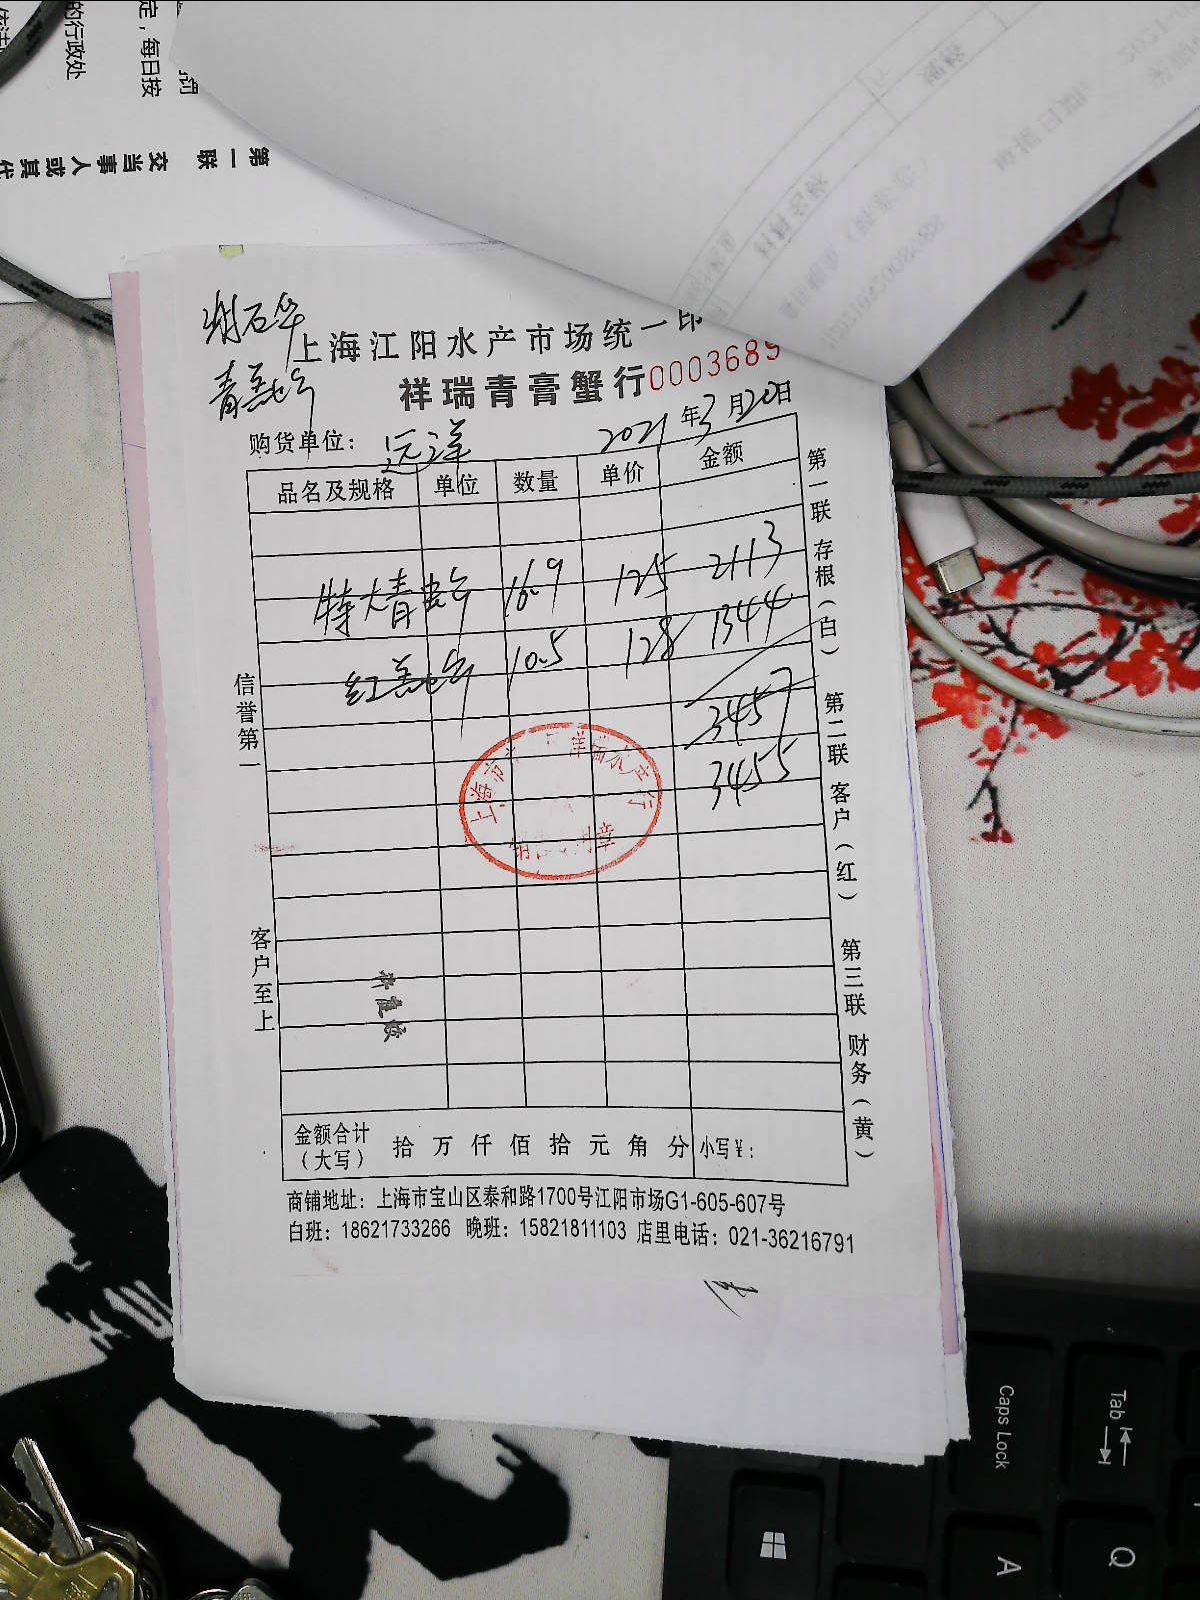 定，每日按
的行政处
罚
第一联 交当事人或其代
谢石华
青羔蟹
上海江阳水产市场统一印
祥瑞青膏蟹行0003689
购货单位：远洋
2021年3月20日
品名及规格 单位 数量 单价 金额
特大青蟹 16.9 125 2113
红羔蟹 10.5 128 1344
3457
3455
信誉第一
客户至上
第一联 存根（白） 第二联 客户（红） 第三联 财务（黄）
金额合计（大写） 拾 万 仟 佰 拾 元 角 分 小写￥：
商铺地址：上海市宝山区泰和路1700号江阳市场G1-605-607号
白班：18621733266 晚班：15821811103 店里电话：021-36216791
Caps Lock
Tab
A
Q